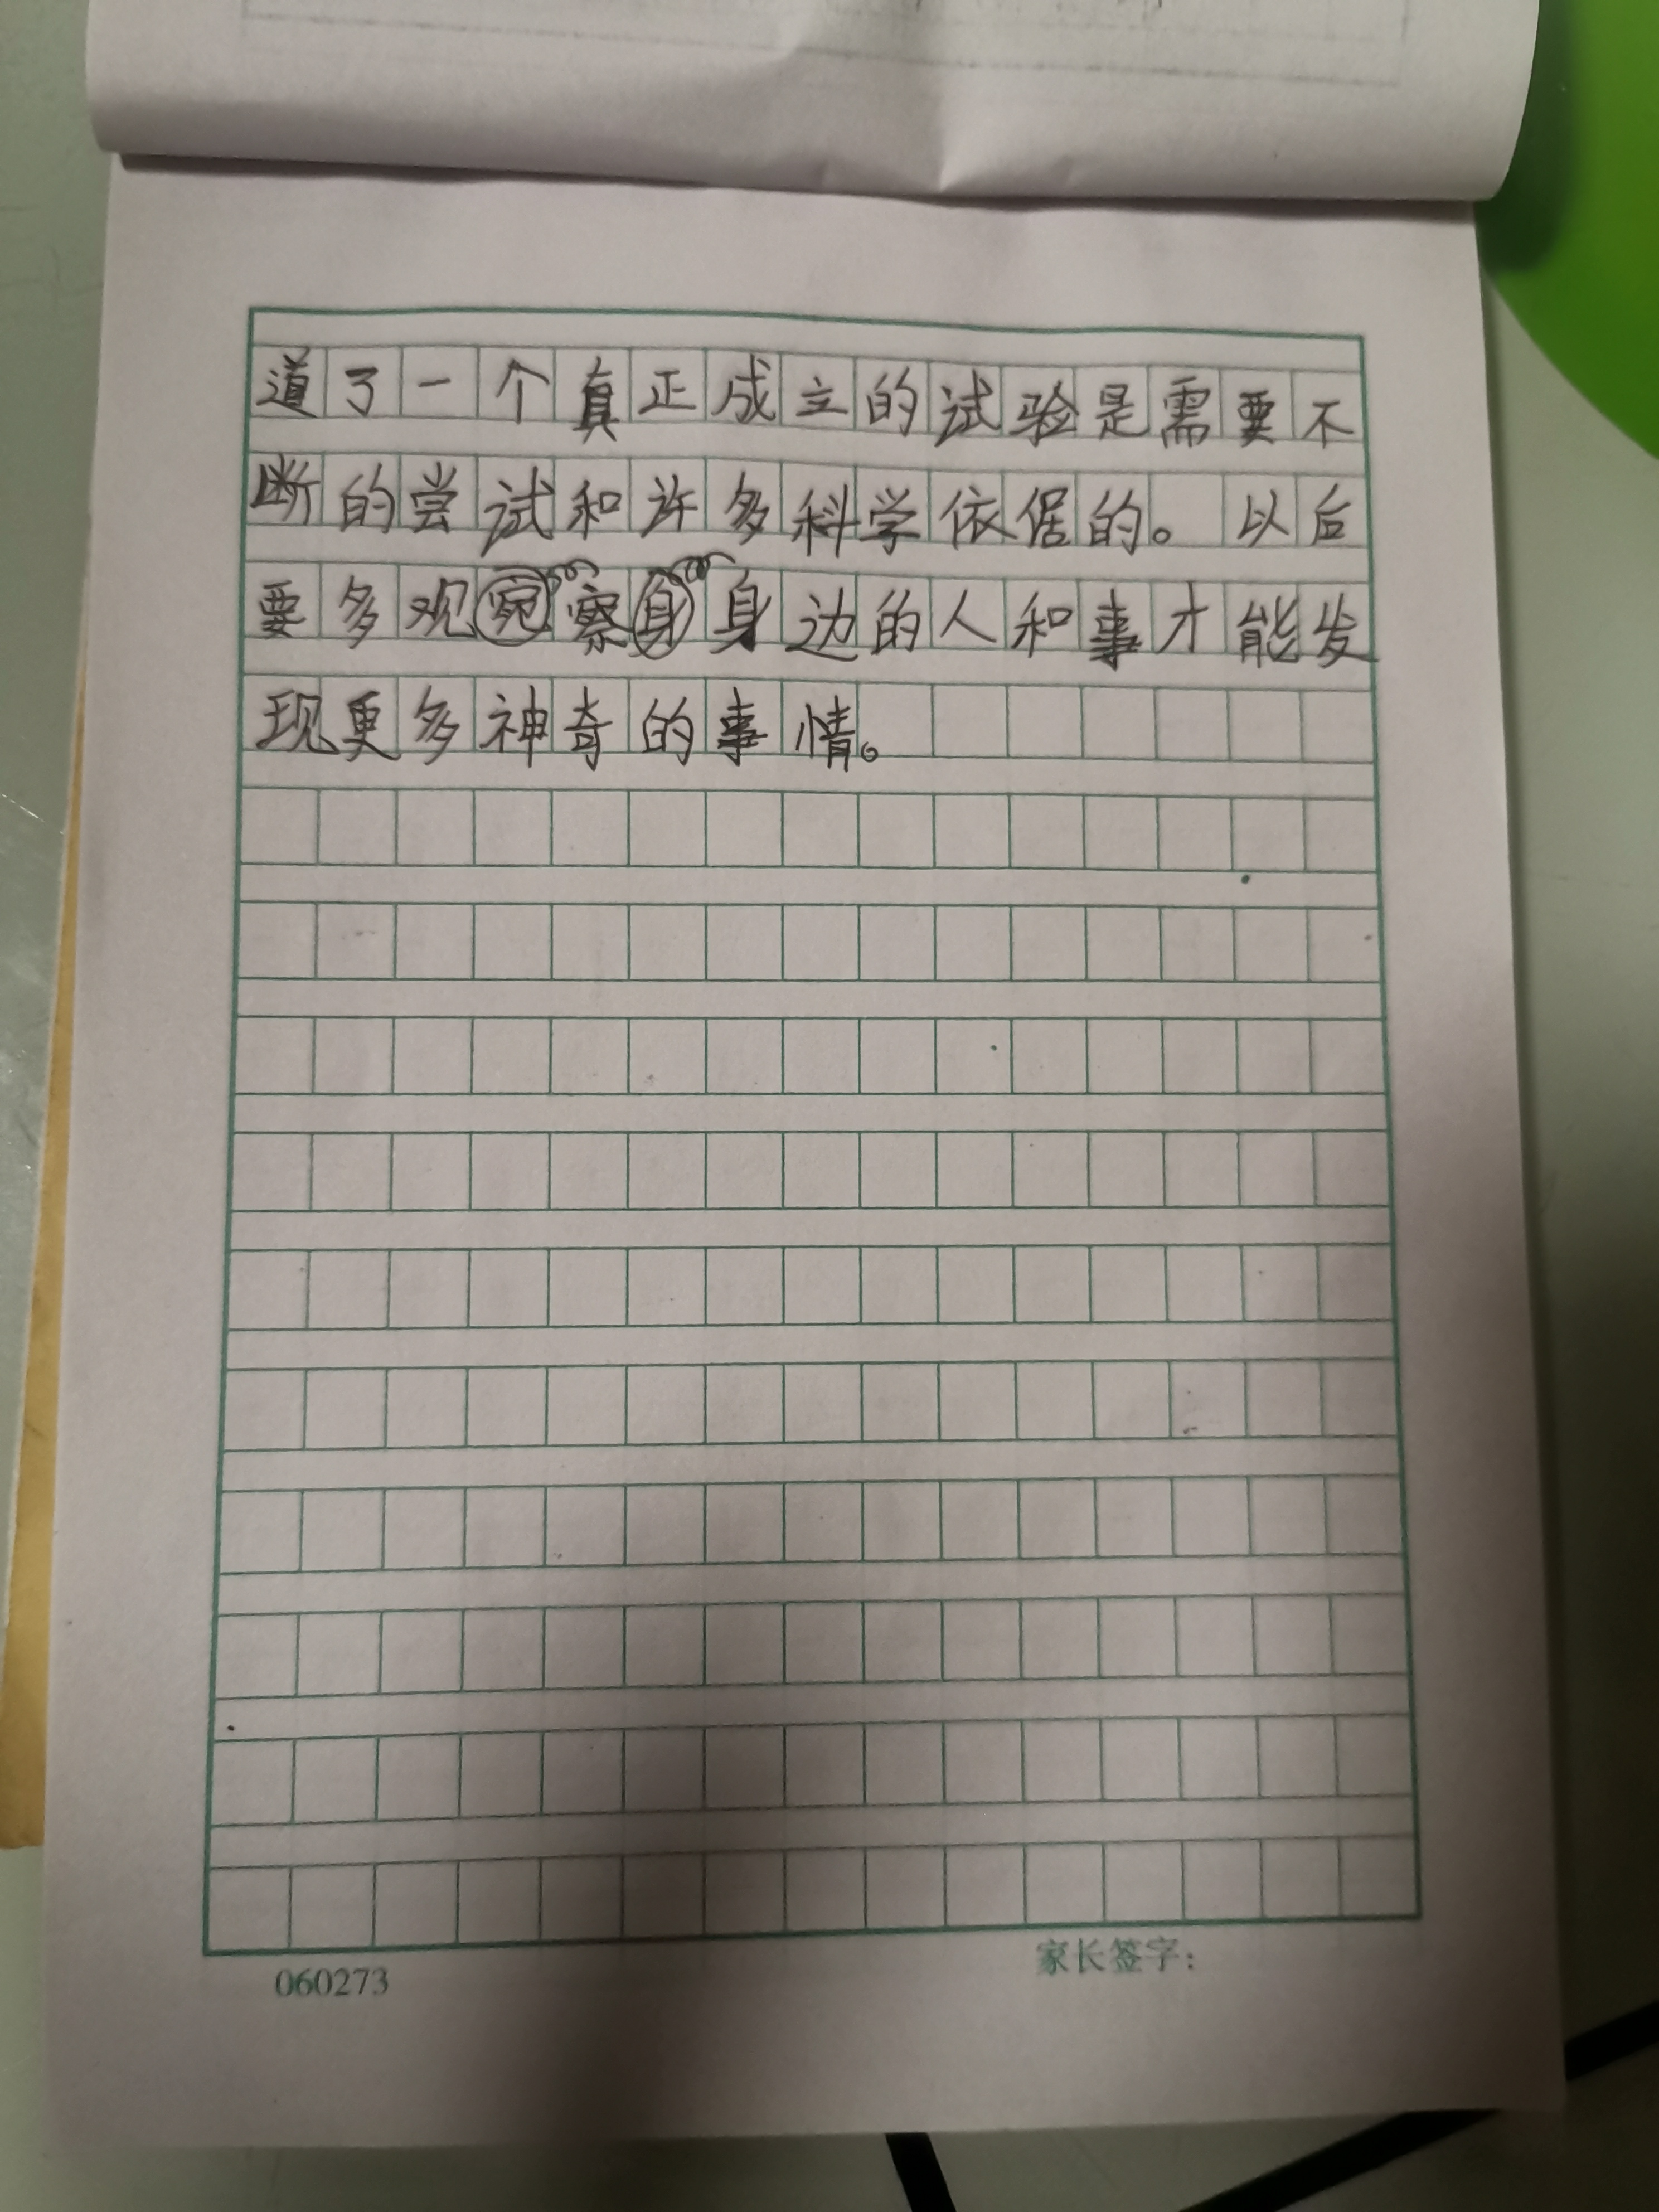 道了一个真正成立的试验是需要不
断的尝试和许多科学依倨的。以后
要多观察身边的人和事才能发
现更多神奇的事情。
060273
家长签字：